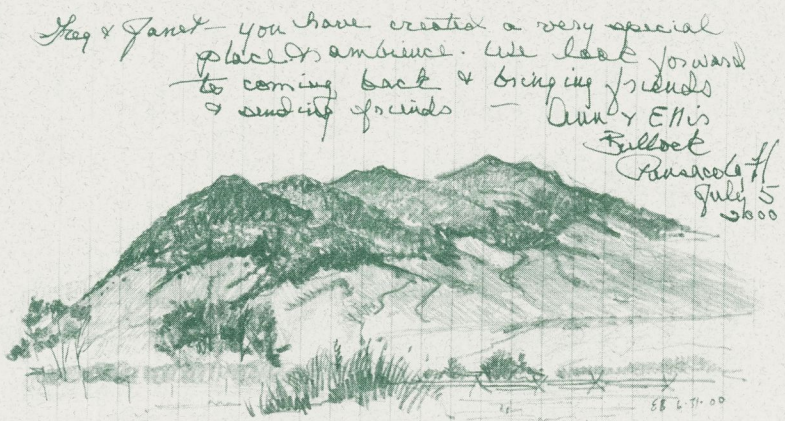 Greg & Janet - you have created a very special
place & ambience. We look forward
to coming back & bringing friends
& sending friends — Ann & Ellis
Bullock
Pensacola, Fl
July 5
2000
EB 6-31-00